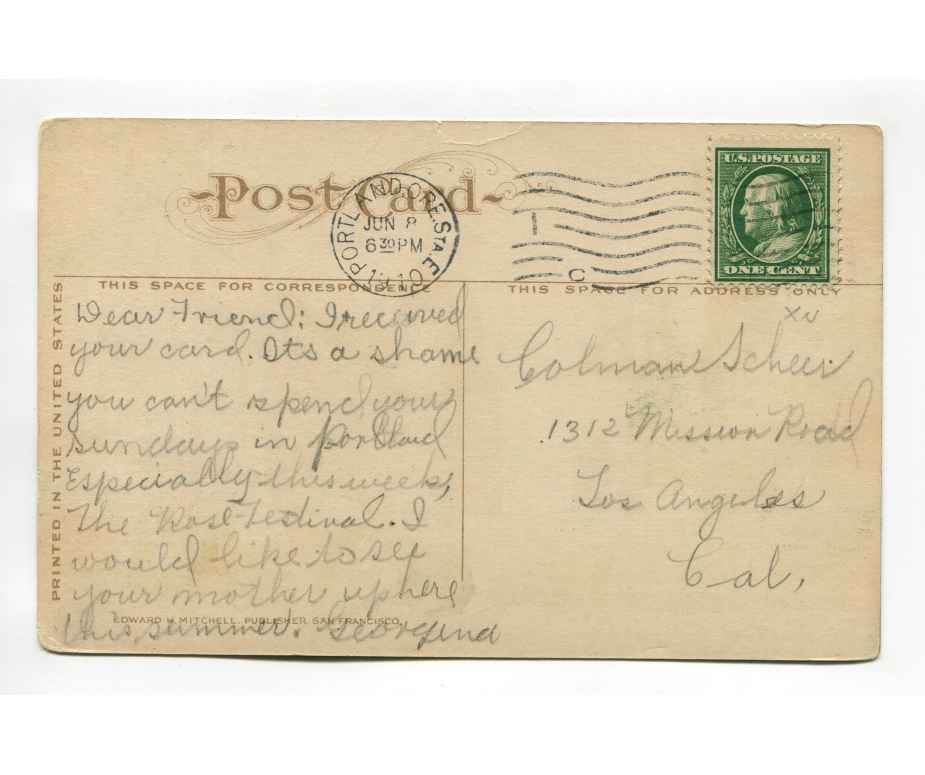 Post Card
PORTLAND, ORE. STA. E.
JUN 8
6 30 PM
1910
U.S. POSTAGE
ONE CENT
THIS SPACE FOR CORRESPONDENCE
THIS SPACE FOR ADDRESS ONLY
PRINTED IN THE UNITED STATES
Dear Friend: I received
your card. Its a shame
you can't spend your
sundays in Portland
Especially this week,
The Rose Festival. I
would like to see
your mother up here
this summer.
EDWARD H. MITCHELL, PUBLISHER, SAN FRANCISCO.
Colman Scheer
1312 Mission Road
Los Angeles
Cal,